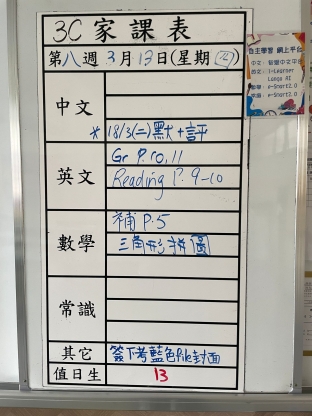 3C 家課表
第八週 3月13日(星期四)
中文
* 18/3(二)默+評
英文
Gr P.10, 11
Reading P. 9-10
數學
補 P.5
三角形拼圖
常識
其它
簽下考藍色file封面
值日生
13
自主學習 網上平台
中文: 智愛中文平台
英文: i-Learner
數學: e-Start2.0
常識: e-Start2.0